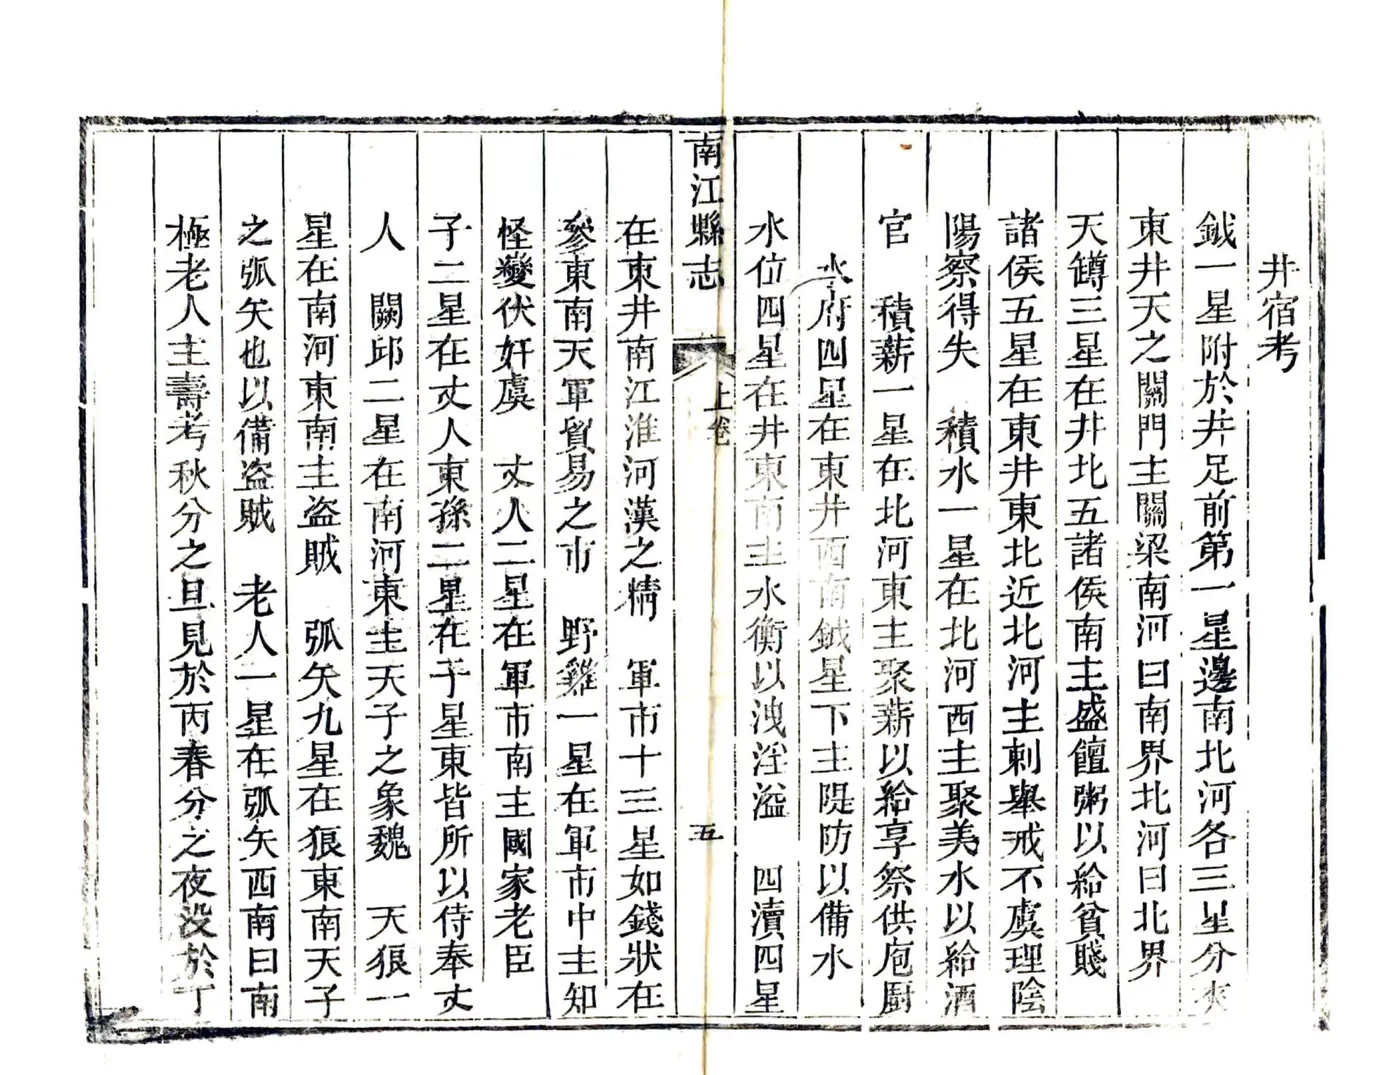 井宿考
鉞一星附於井足前第一星邊南北河各三星分夾
東井天之關門主關梁南河曰南界北河曰北界
天罇三星在井北五諸侯南主盛饘粥以給貧賤
諸侯五星在東井東北近北河主刺舉戒不虞理陰
陽察得失　積水一星在北河西主聚美水以給酒
官　積薪一星在北河東主聚薪以給享祭供庖厨
水府四星在東井西南鉞星下主隄防以備水
水位四星在井東南主水衡以洩淫溢　四瀆四星
南江縣志　上卷　五
在東井南江淮河漢之精　軍市十三星如錢狀在
參東南天軍貿易之市　野雞一星在軍市中主知
怪變伏奸虞　丈人二星在軍市南主國家老臣
子二星在丈人東孫二星在子星東皆所以侍奉丈
人　闕邱二星在南河東主天子之象魏　天狼一
星在南河東南主盗賊　弧矢九星在狼東南天子
之弧矢也以備盗賊　老人一星在弧矢西南曰南
極老人主壽考秋分之旦見於丙春分之夜没於丁